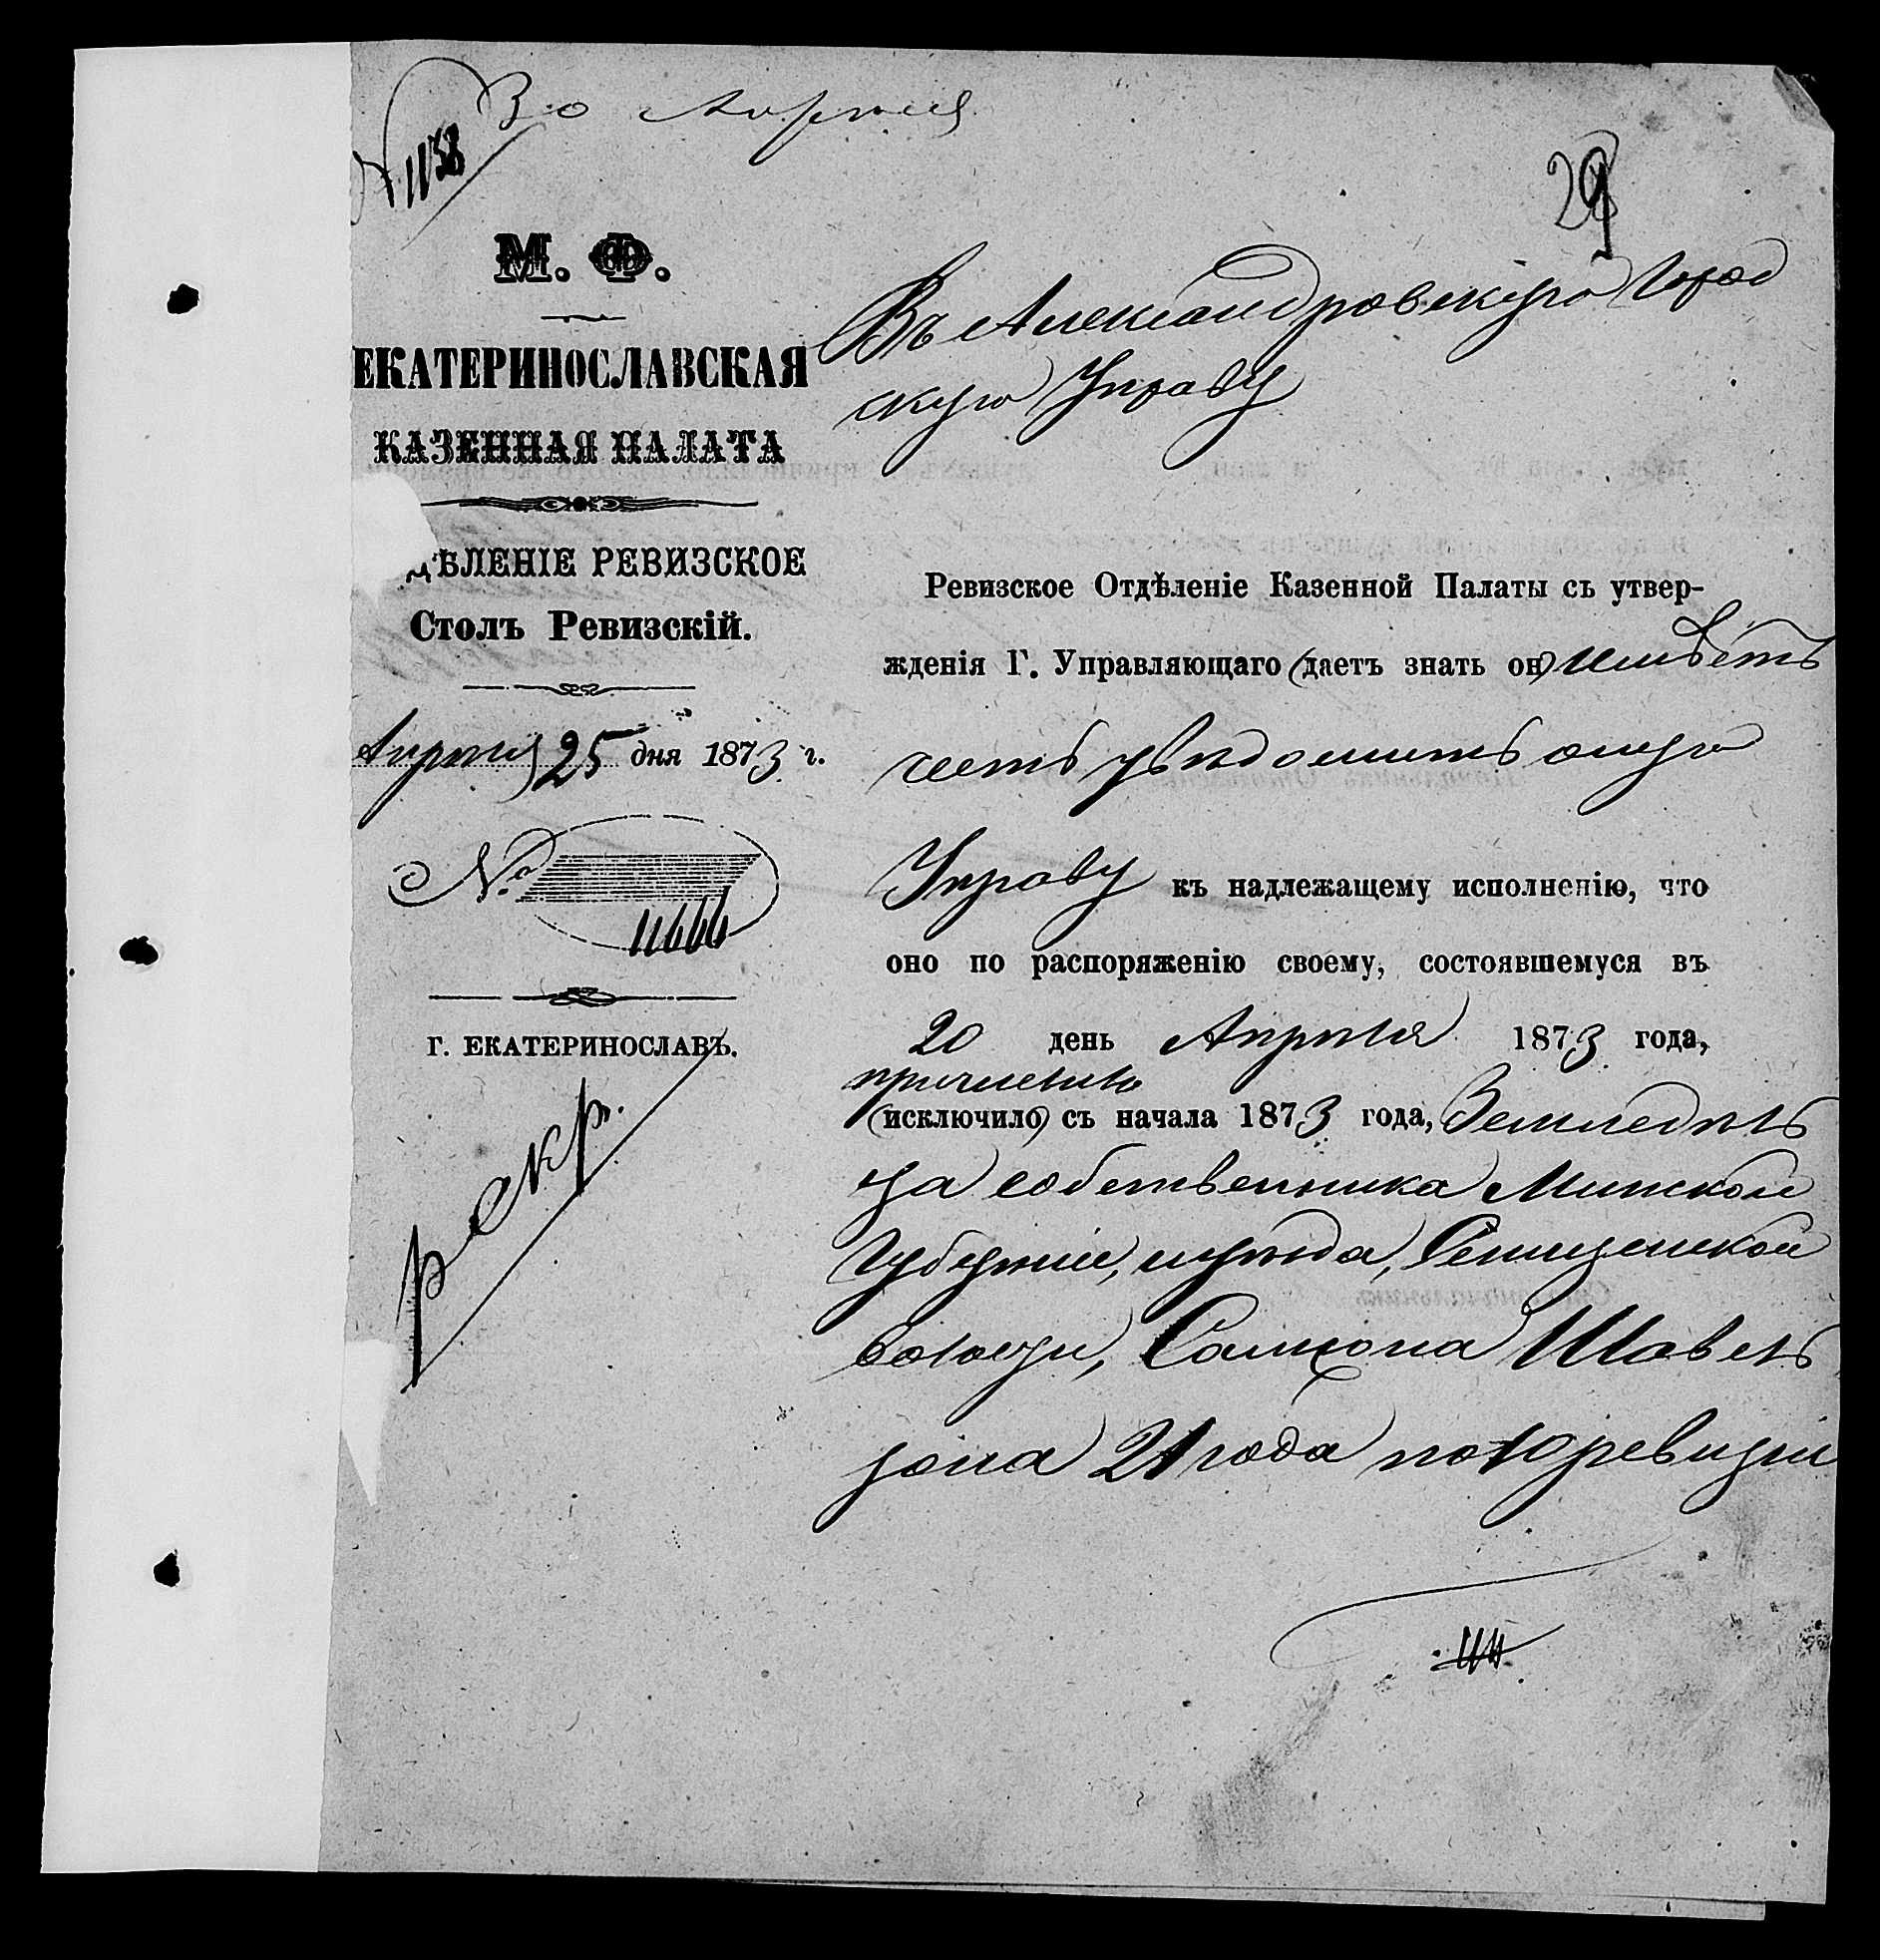 30 Апрѣля
№ 1138
29
М. Ф.
ЕКАТЕРИНОСЛАВСКАЯ
КАЗЕННАЯ ПАЛАТА
ДѢЛЕНІЕ РЕВИЗСКОЕ
Столъ Ревизскій.
Апрѣля 25 дня 1873 г.
№ 11666
г. ЕКАТЕРИНОСЛАВЪ.
Въ Александровскую Город
скую Управу
Ревизское Отдѣленіе Казенной Палаты съ утвер-
жденія Г. Управляющаго (даетъ знать он) имѣетъ
честь увѣдомить оную
Управу къ надлежащему исполненію, что
оно по распоряженію своему, состоявшемуся въ
20 день Апрѣля 1873 года,
причислило
(исключило) съ начала 1873 года, Земледѣль
ца собственника Минской
Губерніи, уѣзда, Сеницкой
волости, Соломона Шавель
зона 21 года по 10 ревизіи